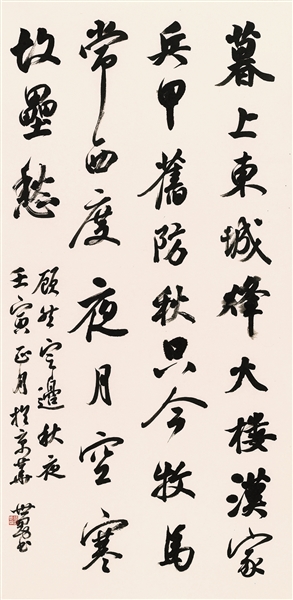 暮上東城烽火樓漢家
兵甲舊防秋只今牧馬
常西度夜月空寒
故壘愁
顧 定邊秋夜
壬寅正月於京華
世 書